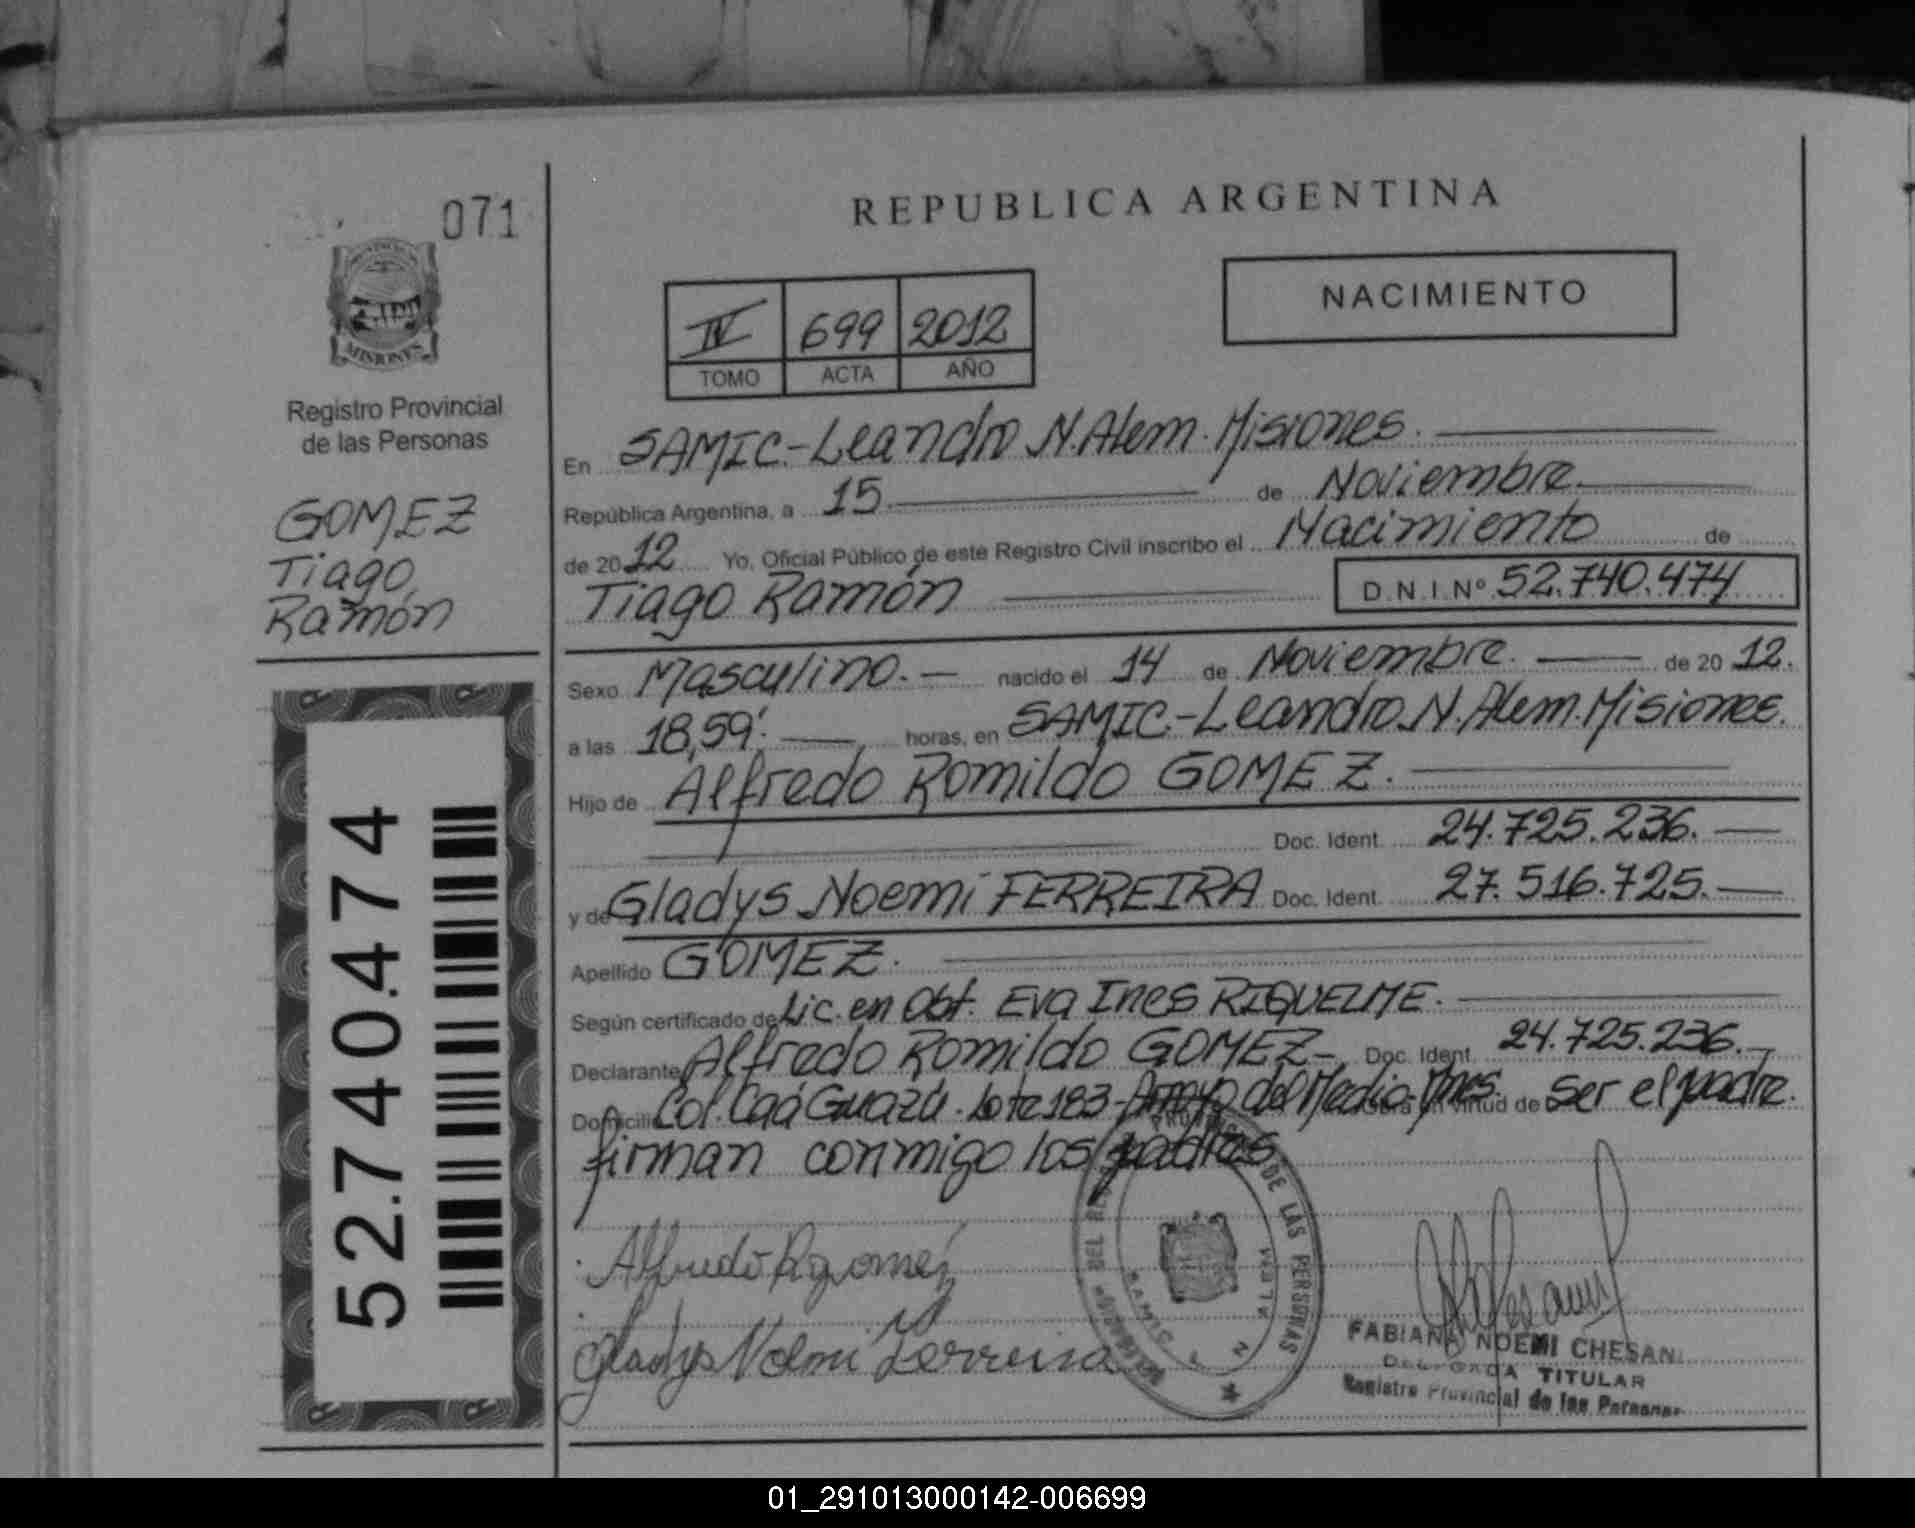 071
REPUBLICA ARGENTINA
NACIMIENTO
IV 699 2012
TOMO ACTA AÑO
MISIONES
Registro Provincial
de las Personas
GOMEZ
Tiago
Ramón
52.740.474
En SAMIC.-Leandro N.Alem.Misiones.
República Argentina, a 15 de Noviembre.
de 2012 Yo, Oficial Público de este Registro Civil inscribo el Nacimiento de
Tiago Ramón D.N.I.Nº 52.740.474
Sexo Masculino.- nacido el 14 de Noviembre. de 2012.
a las 18,59'. horas, en SAMIC.-Leandro.N.Alem.Misiones.
Hijo de Alfredo Romildo GOMEZ.
Doc. Ident. 24.725.236.
y de Gladys Noemi FERREIRA Doc. Ident. 27.516.725.
Apellido GOMEZ.
Según certificado de Lic. en Obt. Eva Ines RIQUELME.
Declarante Alfredo Romildo GOMEZ- Doc. Ident. 24.725.236.-
Domicilio Col. Caá Guazú. lote 183-Arroyo del Medio-Mnes. Obra en virtud de ser el padre.
firman conmigo los padres
DE LAS PERSONAS
SAMIC L N ALEM
Alfredo R gomez
Gladys Noemi Ferreira
FABIANA NOEMI CHESANI
DELEGADA TITULAR
Registro Provincial de las Personas
01_291013000142-006699